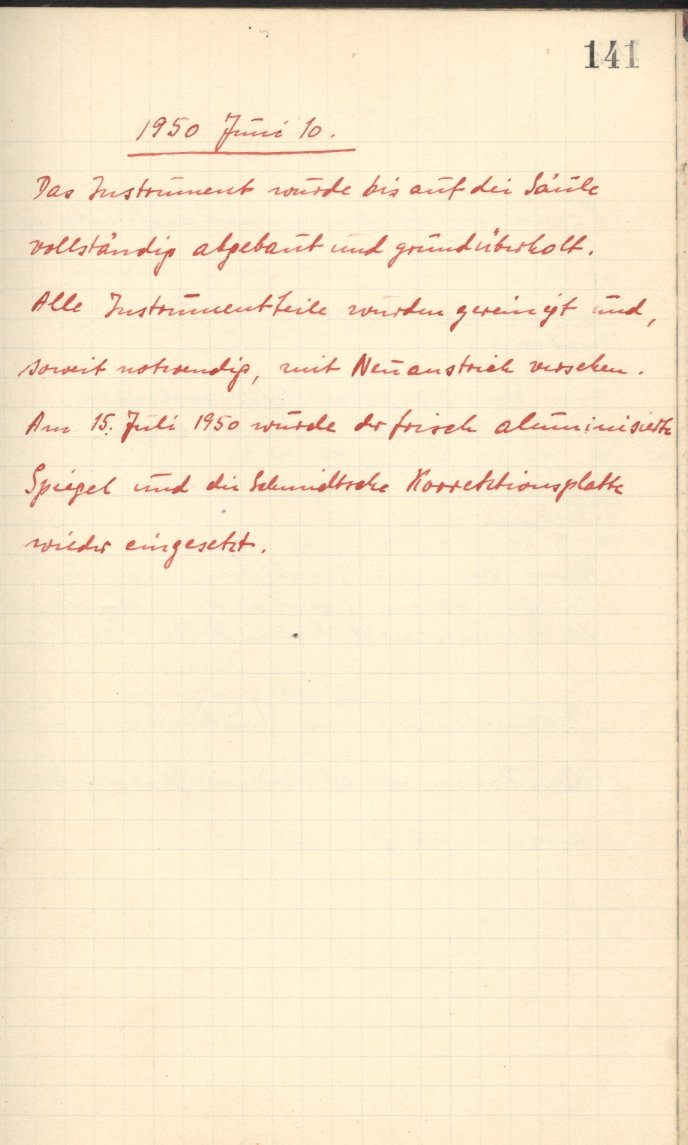 141
1950 Juni 10.
Das Instrument wurde bis auf die Säule
vollständig abgebaut und grundüberholt.
Alle Instrumentteile wurden gereinigt und,
soweit notwendig, mit Neuanstrich versehen.
Am 15. Juli 1950 wurde der frisch aluminisierte
Spiegel und die Schmidtsche Korrektionsplatte
wieder eingesetzt.